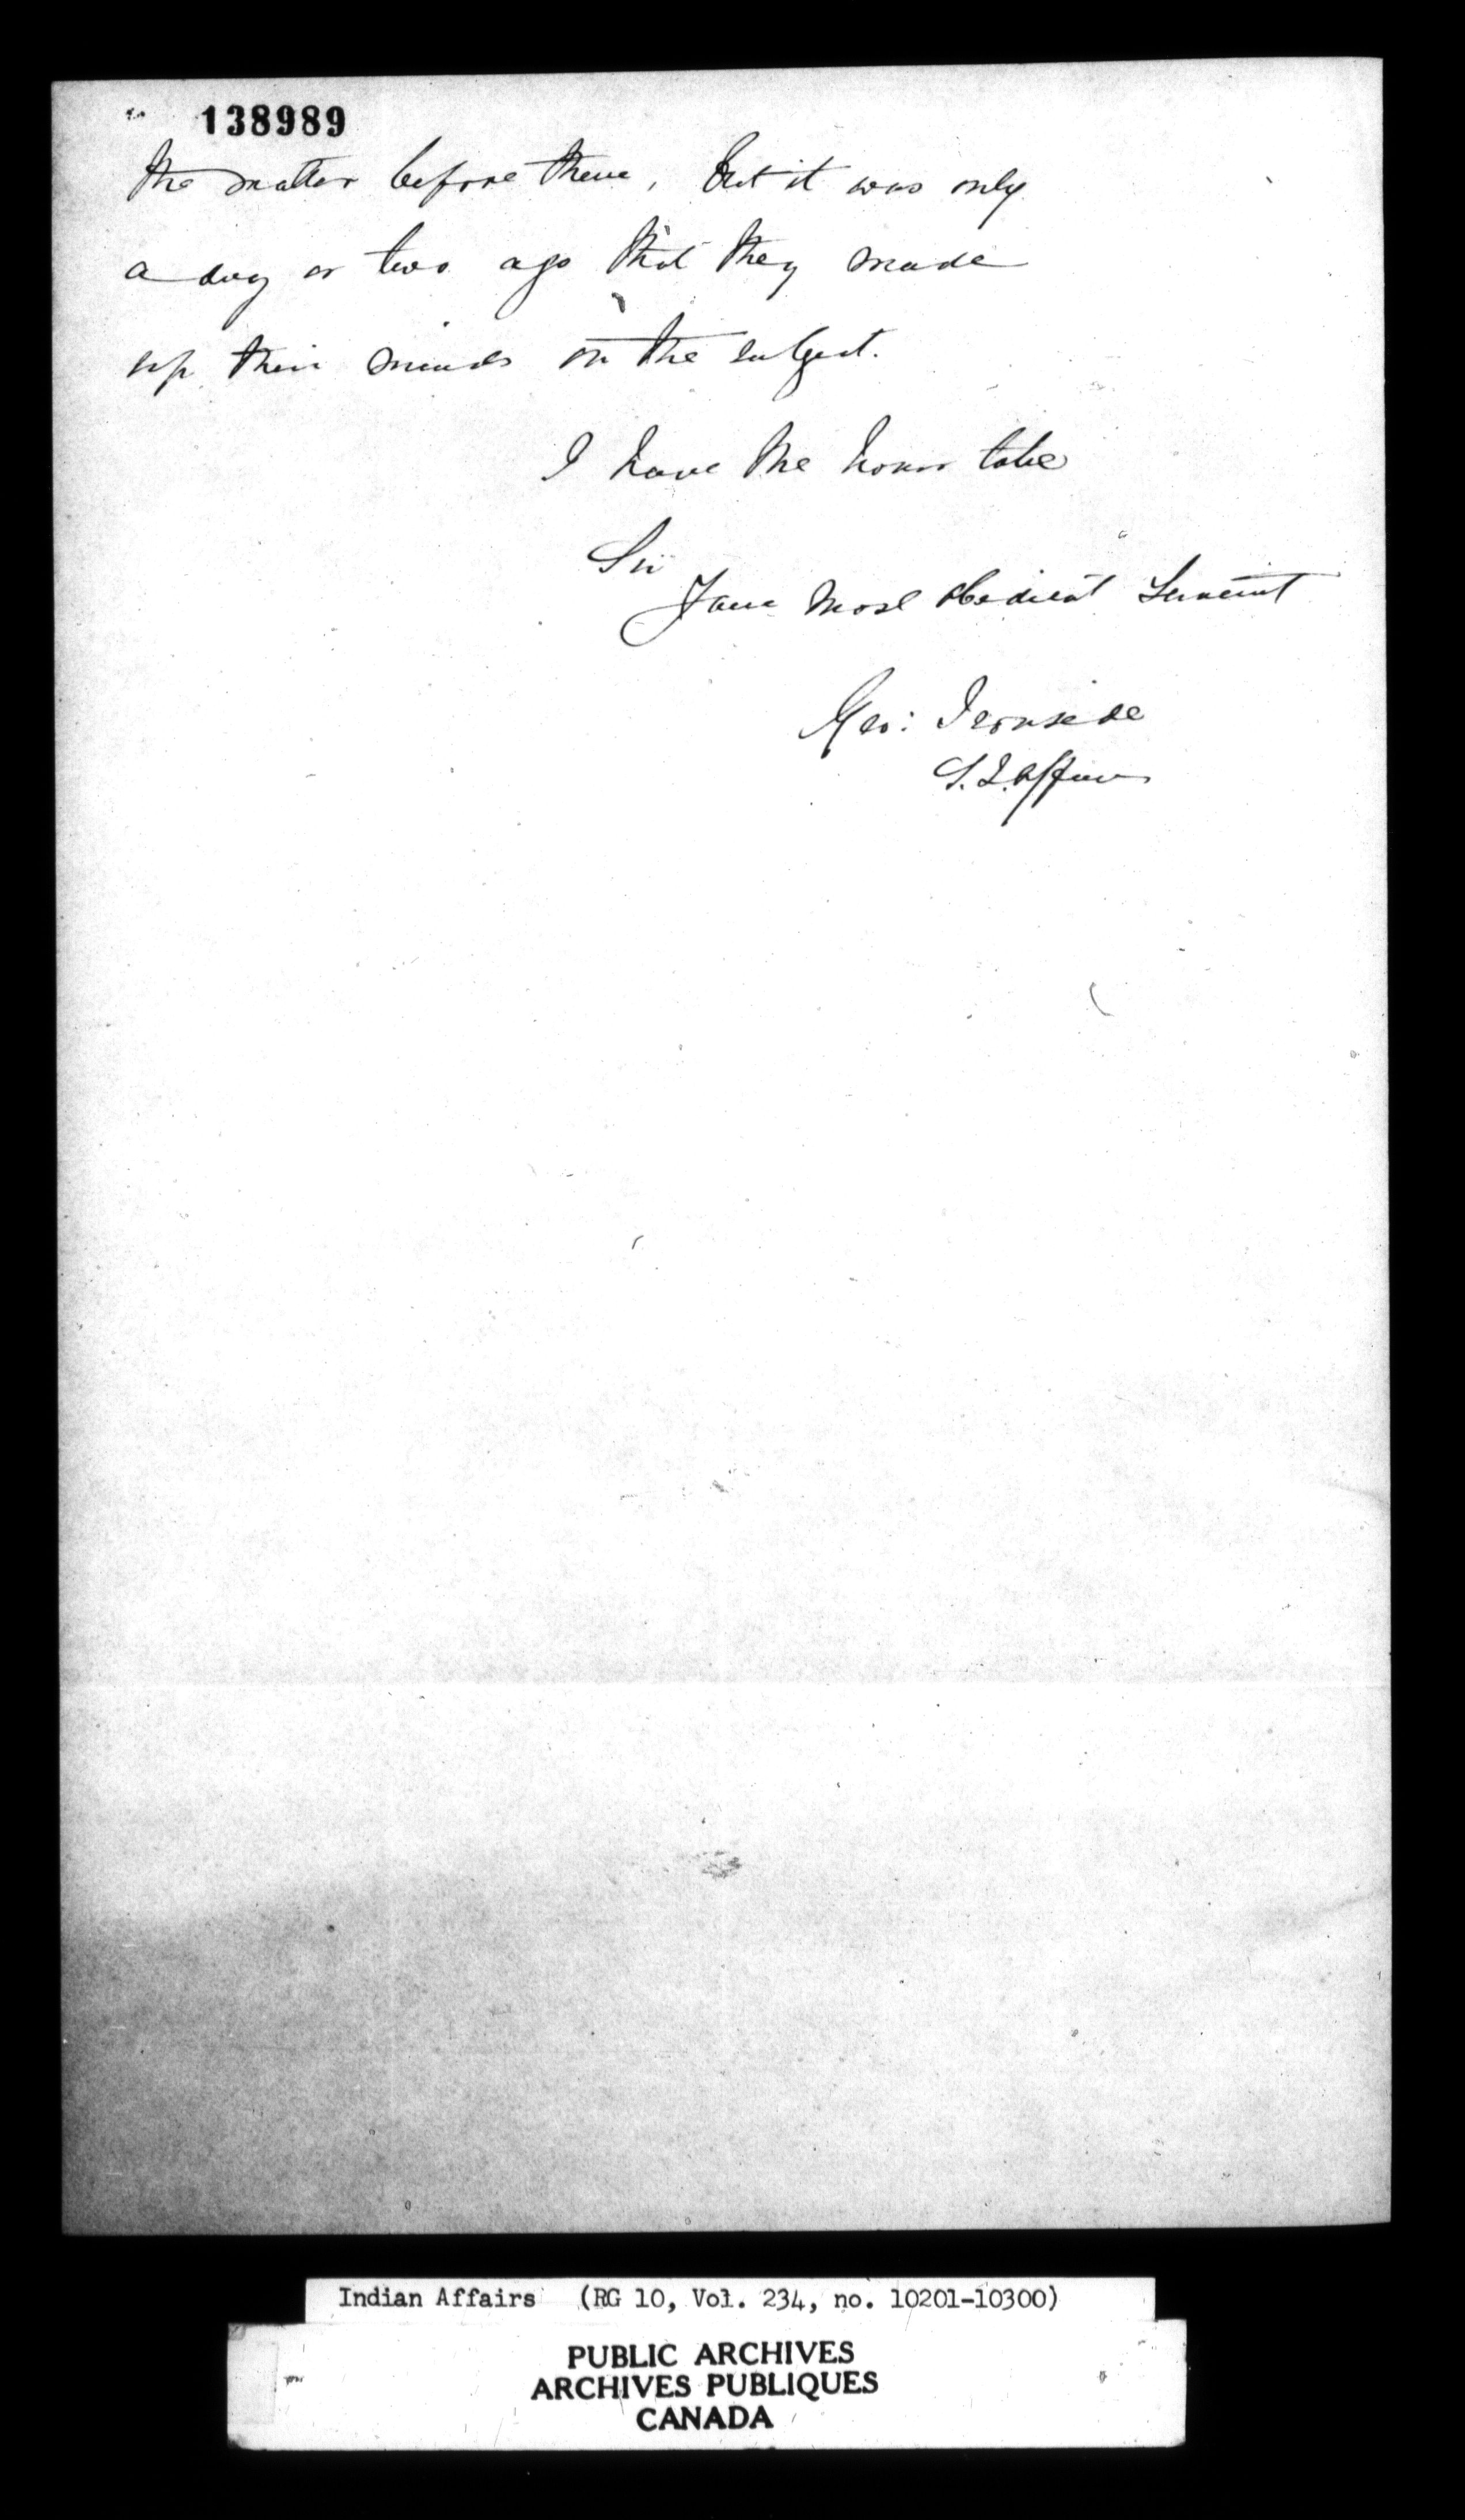 138989
the matter before them, but it was only
a day or two ago that they made
up their minds on the subject.
I have the honor to be
Sir
Your most obedient Servant
Geo: Ironside
S. I. Affairs
Indian Affairs (RG 10, Vol. 234, no. 10201-10300)
PUBLIC ARCHIVES
ARCHIVES PUBLIQUES
CANADA